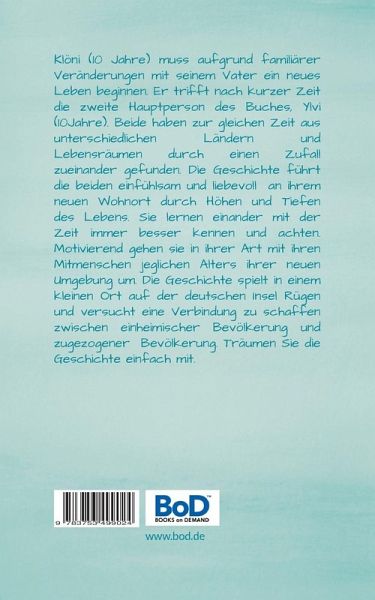 Klöni (10 Jahre) muss aufgrund familiärer
Veränderungen mit seinem Vater ein neues
Leben beginnen. Er trifft nach kurzer Zeit
die zweite Hauptperson des Buches, Ylvi
(10Jahre). Beide haben zur gleichen Zeit aus
unterschiedlichen Ländern und
Lebensräumen durch einen Zufall
zueinander gefunden. Die Geschichte führt
die beiden einfühlsam und liebevoll an ihrem
neuen Wohnort durch Höhen und Tiefen
des Lebens. Sie lernen einander mit der
Zeit immer besser kennen und achten.
Motivierend gehen sie in ihrer Art mit ihren
Mitmenschen jeglichen Alters ihrer neuen
Umgebung um. Die Geschichte spielt in einem
kleinen Ort auf der deutschen Insel Rügen
und versucht eine Verbindung zu schaffen
zwischen einheimischer Bevölkerung und
zugezogener Bevölkerung. Träumen Sie die
Geschichte einfach mit.
9 783753 499024
BoD™
BOOKS on DEMAND
www.bod.de